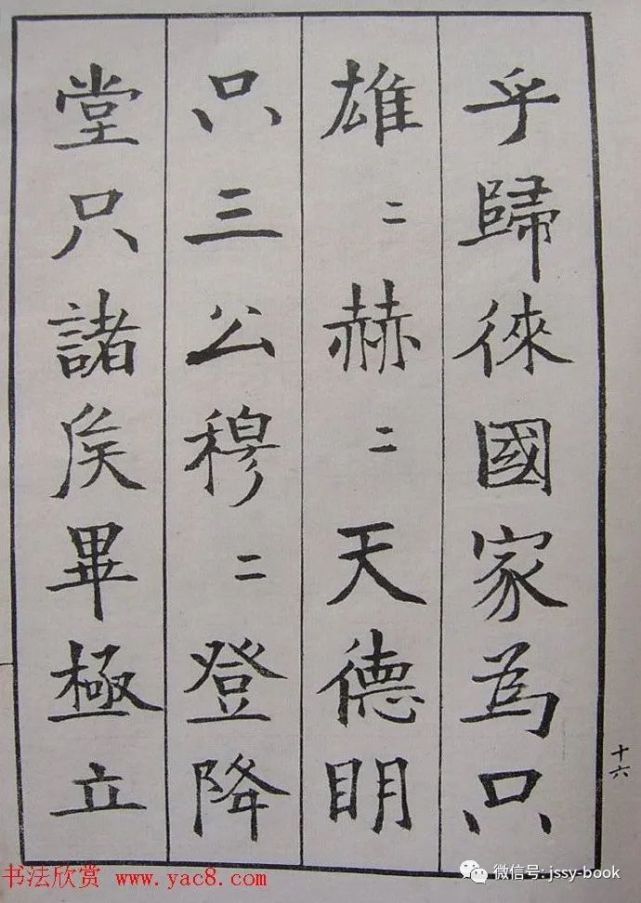 乎歸徠國家為只
雄〻赫〻天德明
只三公穆〻登降
堂只諸矦畢極立
十六
书法欣赏 www.yac8.com
微信号: jssy-book